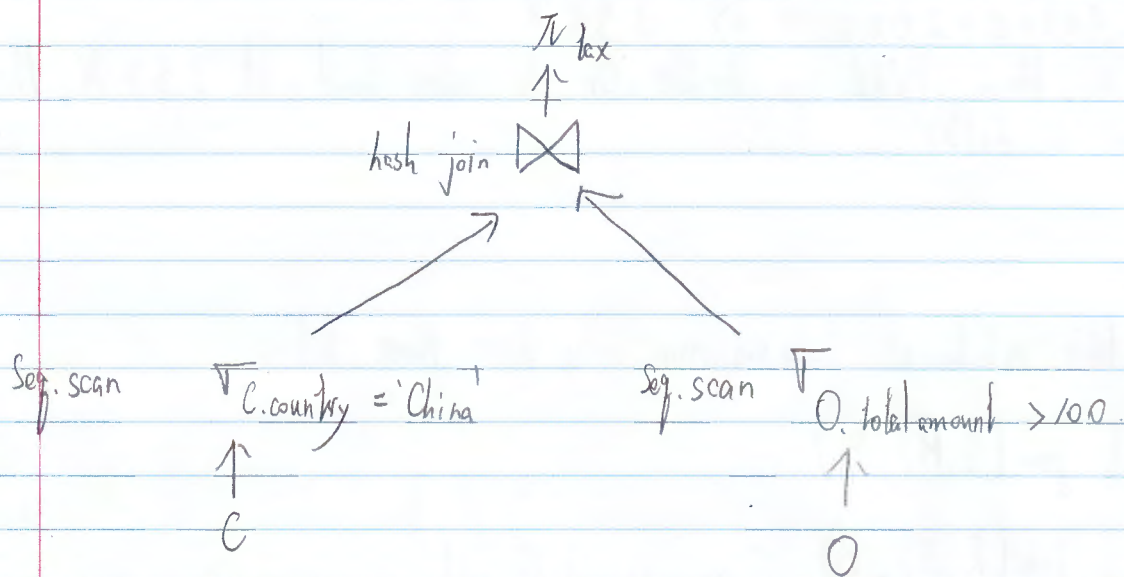 π tax
hash join ⋈
Seq. scan σ C.country = 'China' Seq. scan σ O.total amount > 100
C O